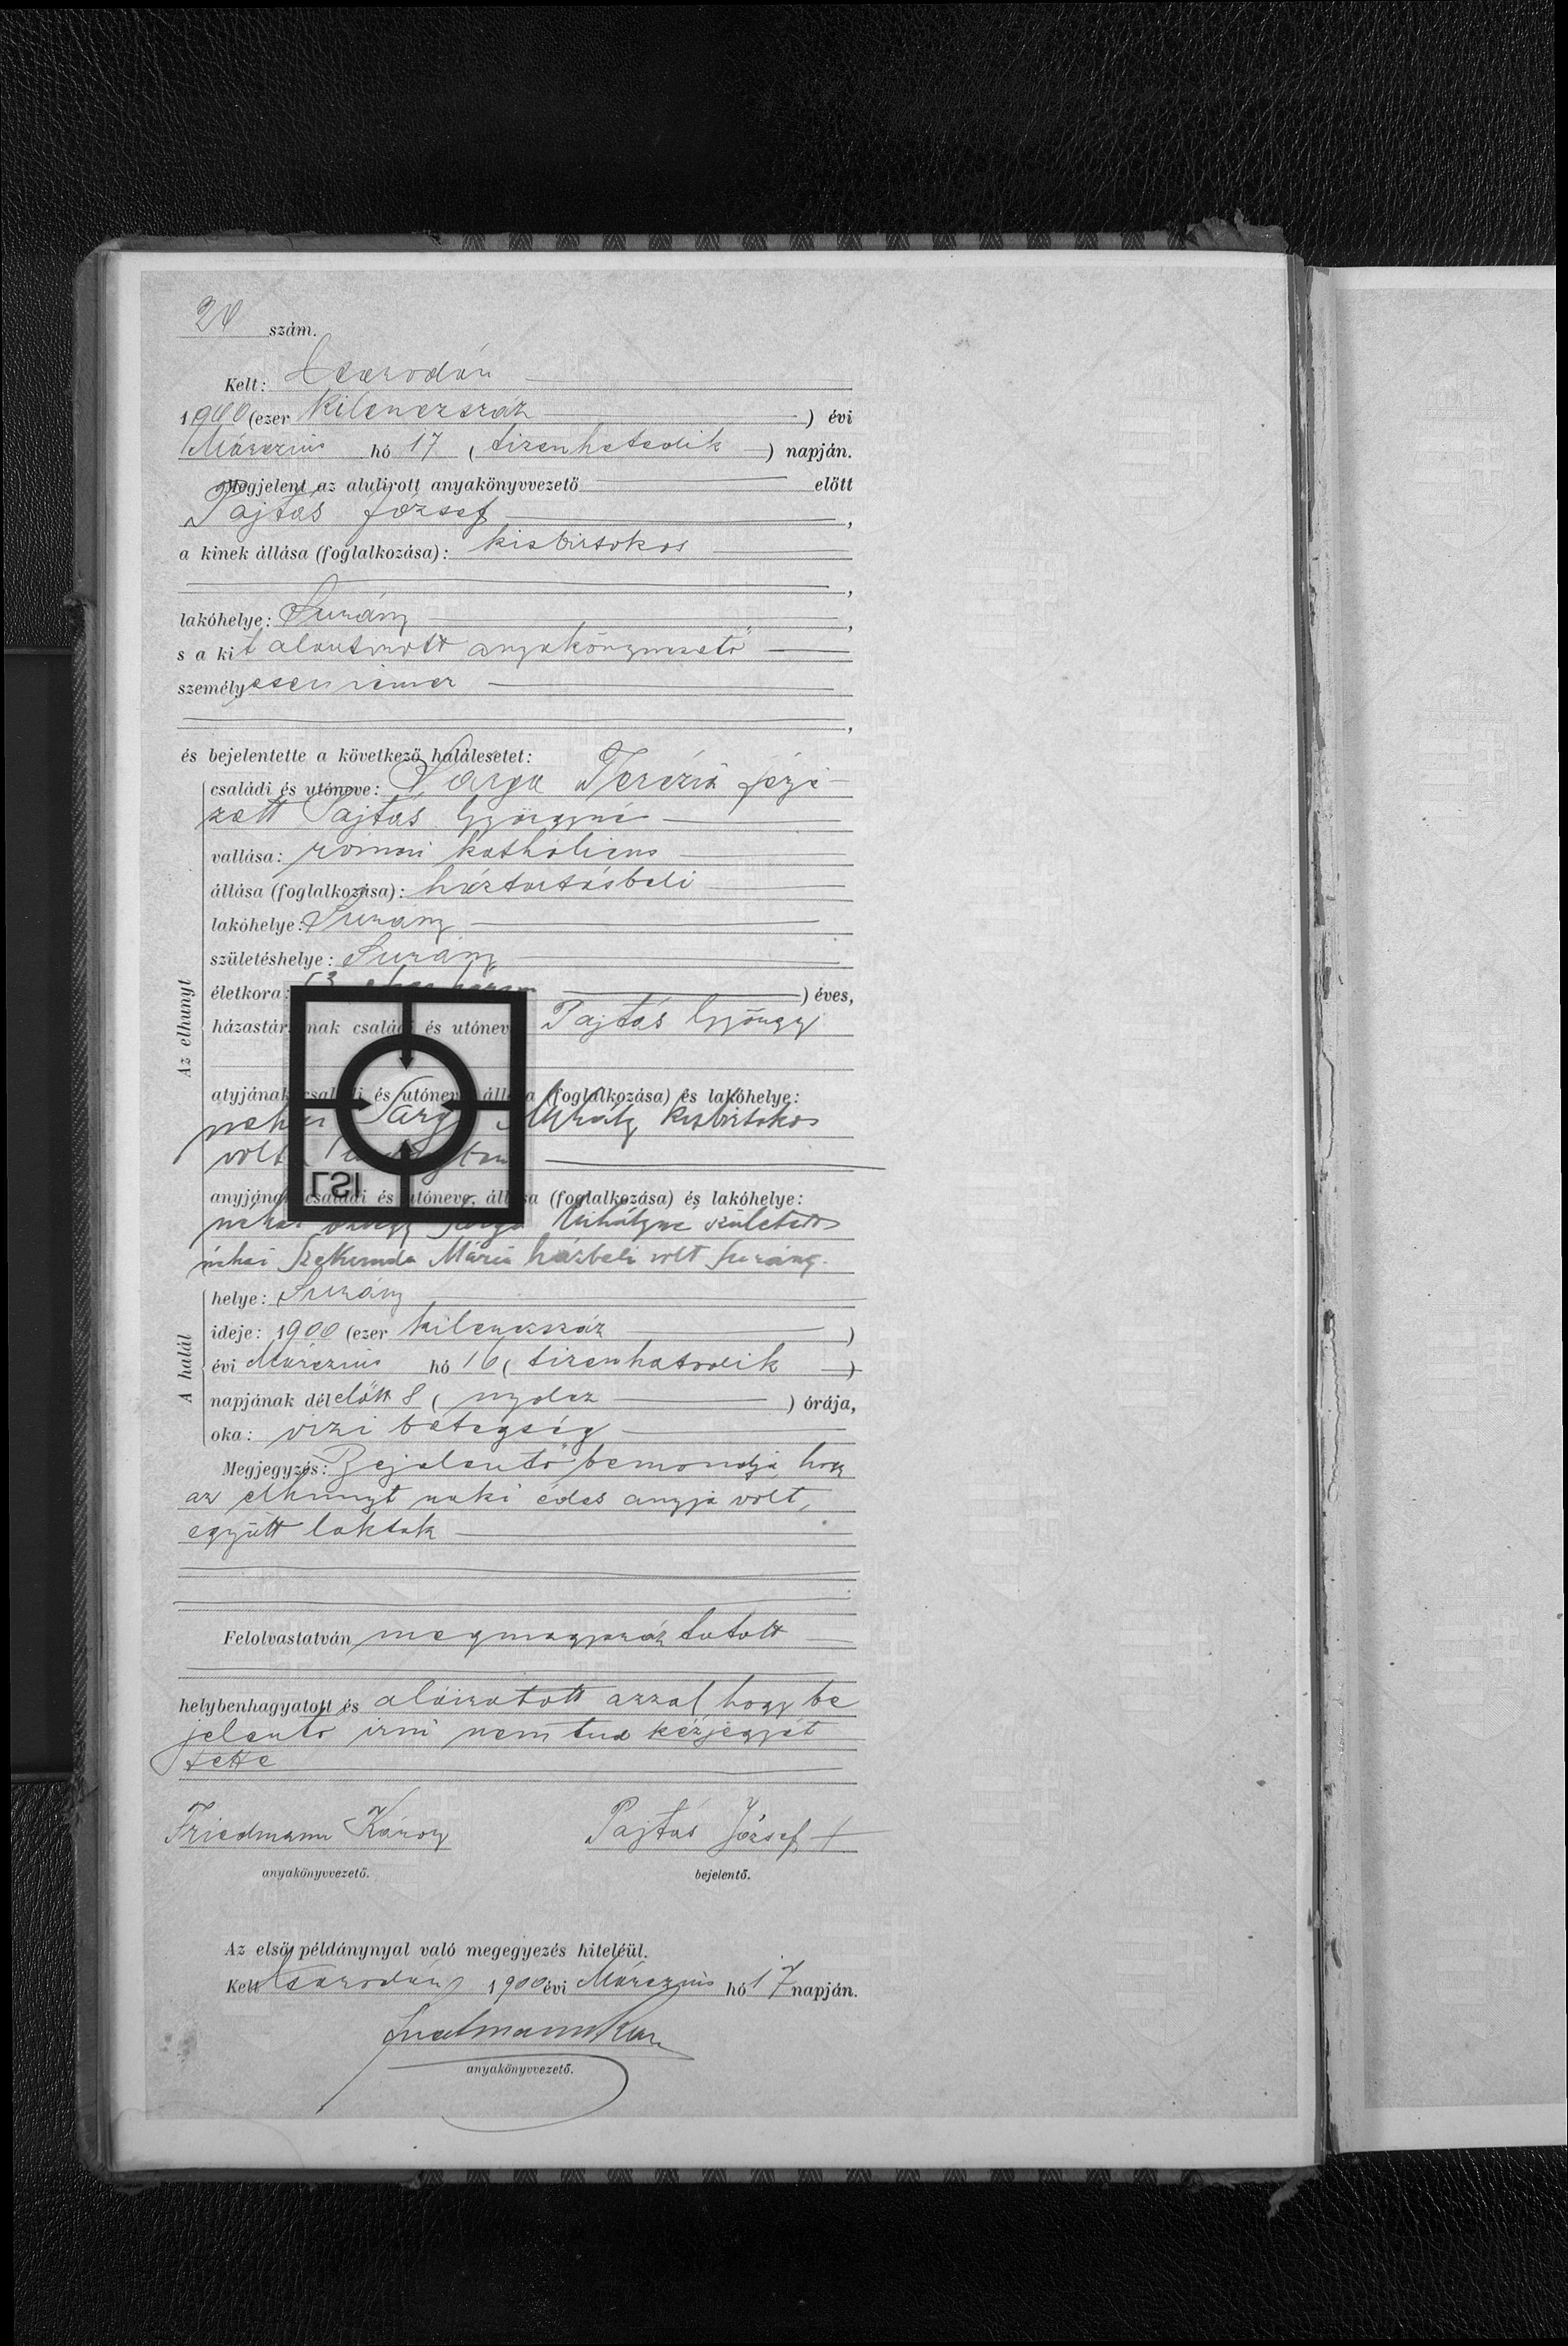 20 szám.
Kelt:
1900 (ezer kilenczszáz ) évi
Márczius hó 17 (tizenhetedik ) napján.
Megjelent az alulirott anyakönyvvezető előtt
Pajtás József,
a kinek állása (foglalkozása): kisbirtokos
lakóhelye: Surány,
s a kit alantirott anyakönyvvezető
személyesen ismer
és bejelentette a következő halálesetet:
családi és utóneve: Varga Terézia férje-
zett Pajtás Györgyné
vallása: római katholicus
állása (foglalkozása): háztartásbeli
lakóhelye: Surány
születéshelye: Surány
életkora: ) éves,
házastársának családi és utóneve Pajtás György
atyjának családi és utóneve, állása (foglalkozása) és lakóhelye:
néhai Varga Mihály kisbirtokos
volt
anyjának családi és utóneve, állása (foglalkozása) és lakóhelye:
néhai Varga Mihályné született
néhai Szekunda Mária házbeli volt Surány
Az elhunyt
helye: Surány
ideje: 1900 (ezer kilenczszáz )
évi Márczius hó 16 (tizenhatodik )
napjának délelőtt 8 (nyolcz ) órája,
oka: vizi betegség
A halál
Megjegyzés: Bejelentő bemondja, hogy
az elhunyt neki édes anyja volt,
együtt laktak
Felolvastatván megmagyaráztatott
helybenhagyatott és aláiratott azzal, hogy be
jelentő irni nem tud kézjegyét
tette
Friedmann Károly Pajtás József +
anyakönyvvezető. bejelentő.
Az első példánynyal való megegyezés hiteléül.
Kelt 1900 évi Márczius hó 17 napján.
anyakönyvvezető.
LSI